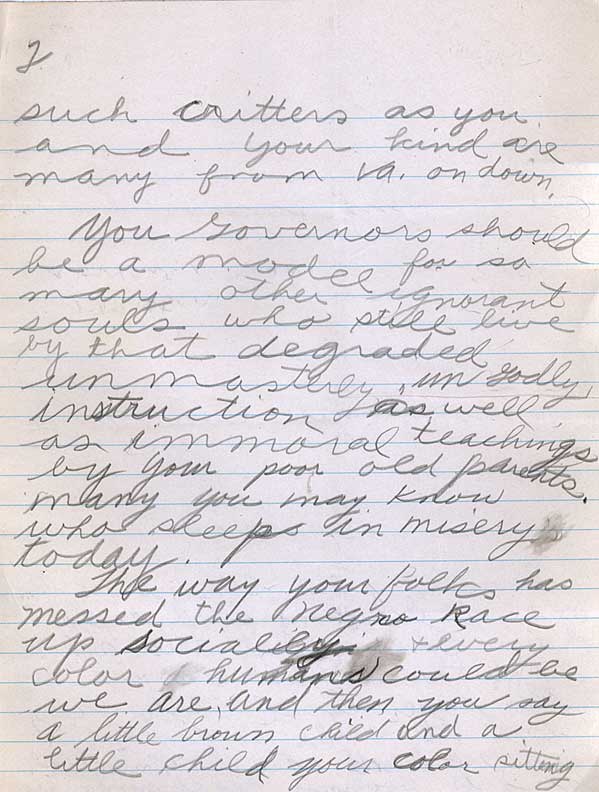 2
such critters as you
and your kind are
many from Va. on down.
You Governors should
be a model for so
many other ignorant
souls who still live
by that degraded
unmasterly, un Godly,
instruction as well
as immoral teachings
by your poor old parents.
many you may know
who sleeps in misery
today.
The way your folks has
messed the Negro Race
up socially, + every
color humans could be
we are, and then you say
a little brown child and a
little child your color sitting